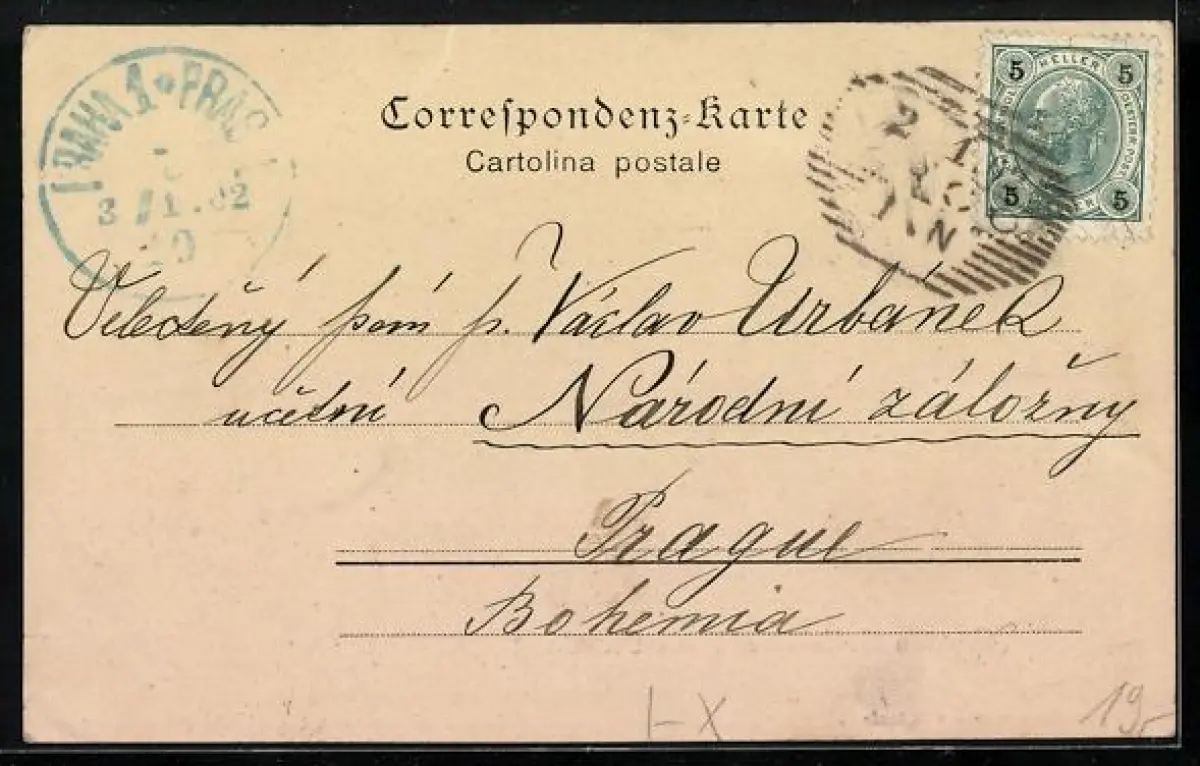 PRAHA 1 * PRAG
3/1.02
9
Correspondenz-Karte
Cartolina postale
5 HELLER 5
5 5
Velectěný pán p. Václav Urbánek
účetní Národní záložny
Prague
Bohemia
I-X
19,-